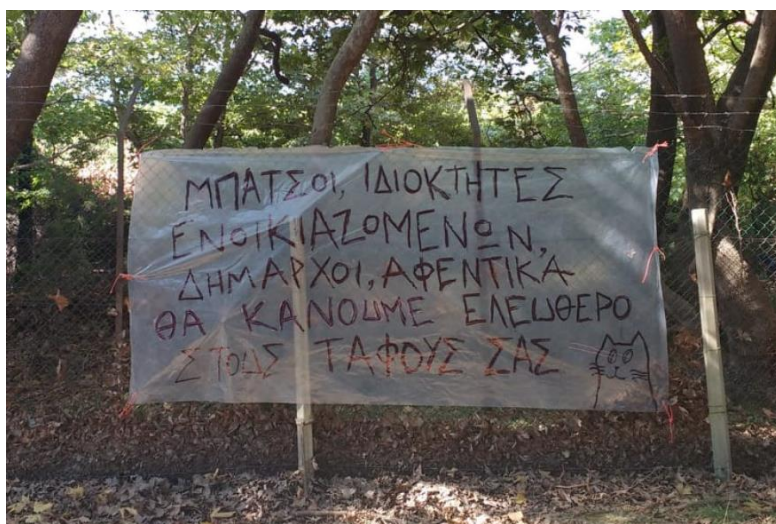 ΜΠΑΤΣΟΙ, ΙΔΙΟΚΤΗΤΕΣ
ΕΝΟΙΚΙΑΖΟΜΕΝΩΝ,
ΔΗΜΑΡΧΟΙ, ΑΦΕΝΤΙΚΑ
ΘΑ ΚΑΝΟΥΜΕ ΕΛΕΥΘΕΡΟ
ΣΤΟΥΣ ΤΑΦΟΥΣ ΣΑΣ